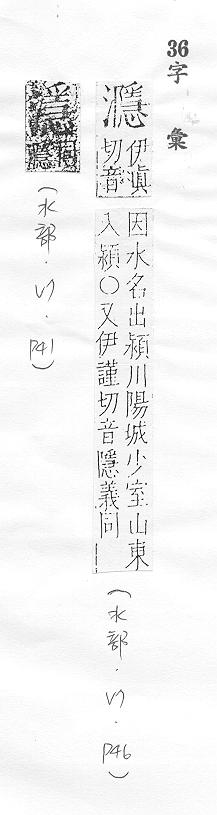 36字彙
濦
伊滇
切音
因水名出潁川陽城少室山東
入潁○又伊謹切音隱義同
(水部· ·P46)
(水部· ·P41)